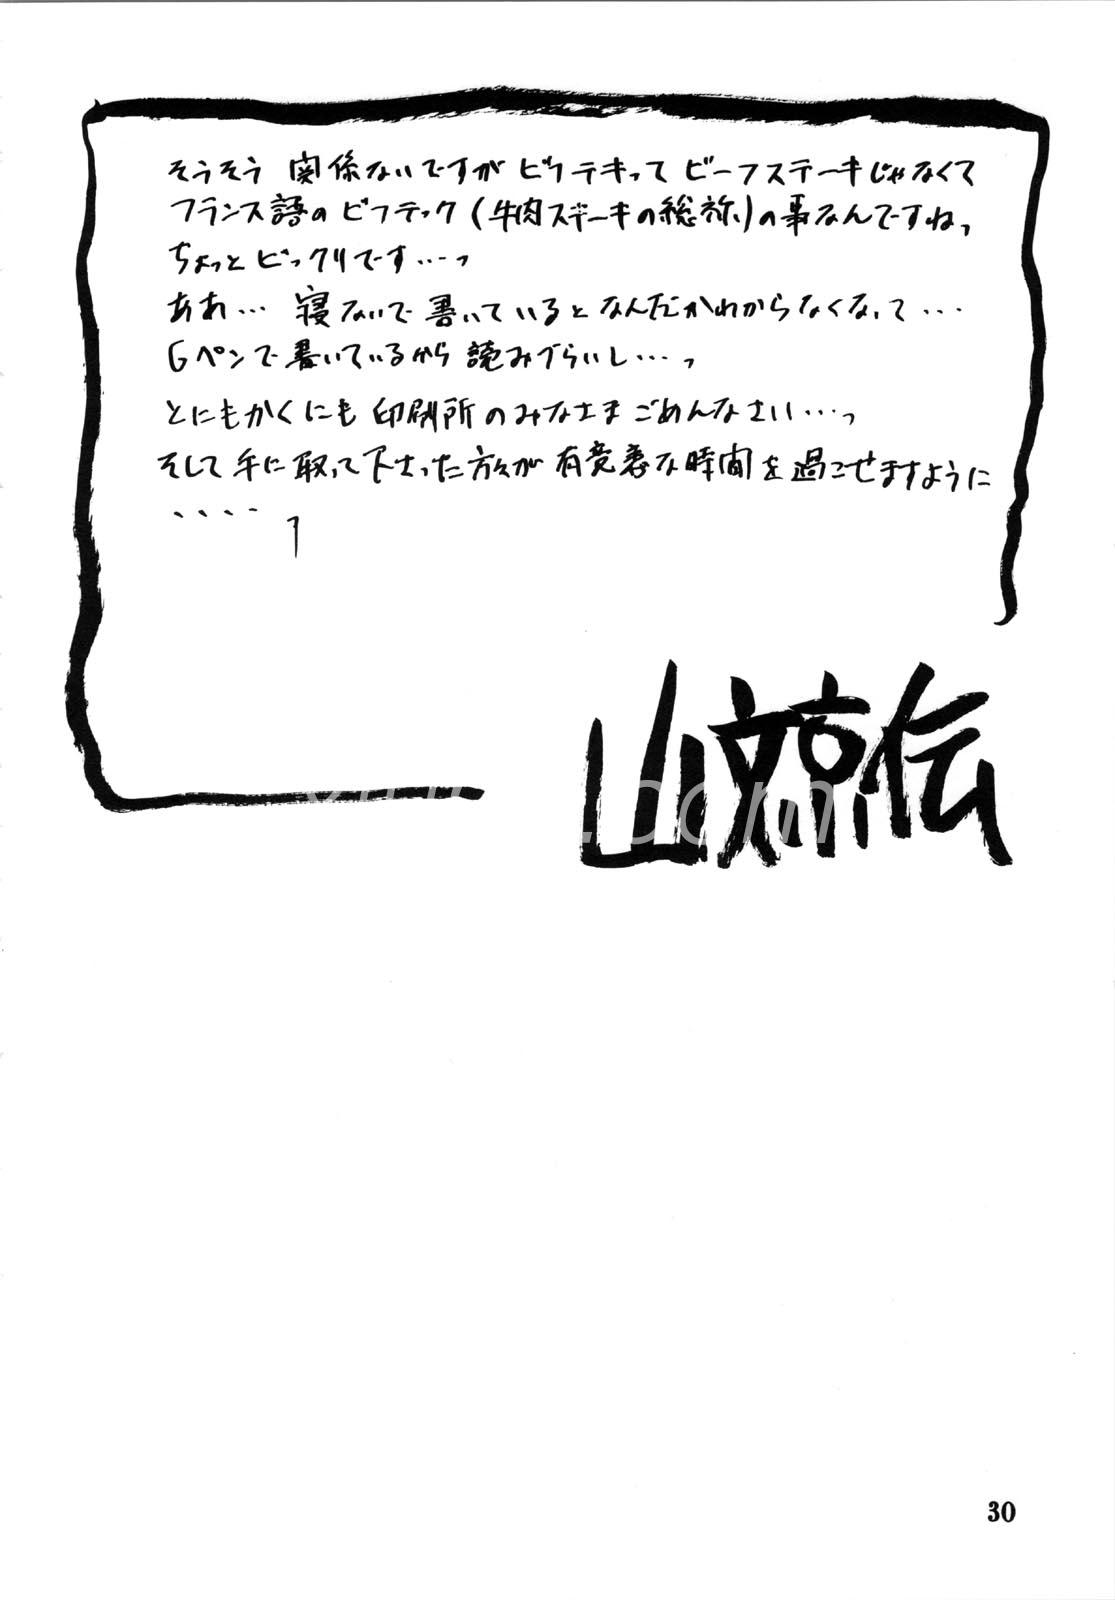 そうそう 関係ないですが ビフテキって ビーフステーキじゃなくて
フランス語のビフテック(牛肉ステーキの総称)の事なんですねっ
ちょっとビックリです…っ
ああ… 寝ないで書いているとなんだかわからなくなって…
Gペンで書いているから読みづらいし…っ
とにもかくにも印刷所のみなさまごめんなさい…っ
そして手に取って下さった方々が有意義な時間を過ごせますように
、、、、
山文京伝
30